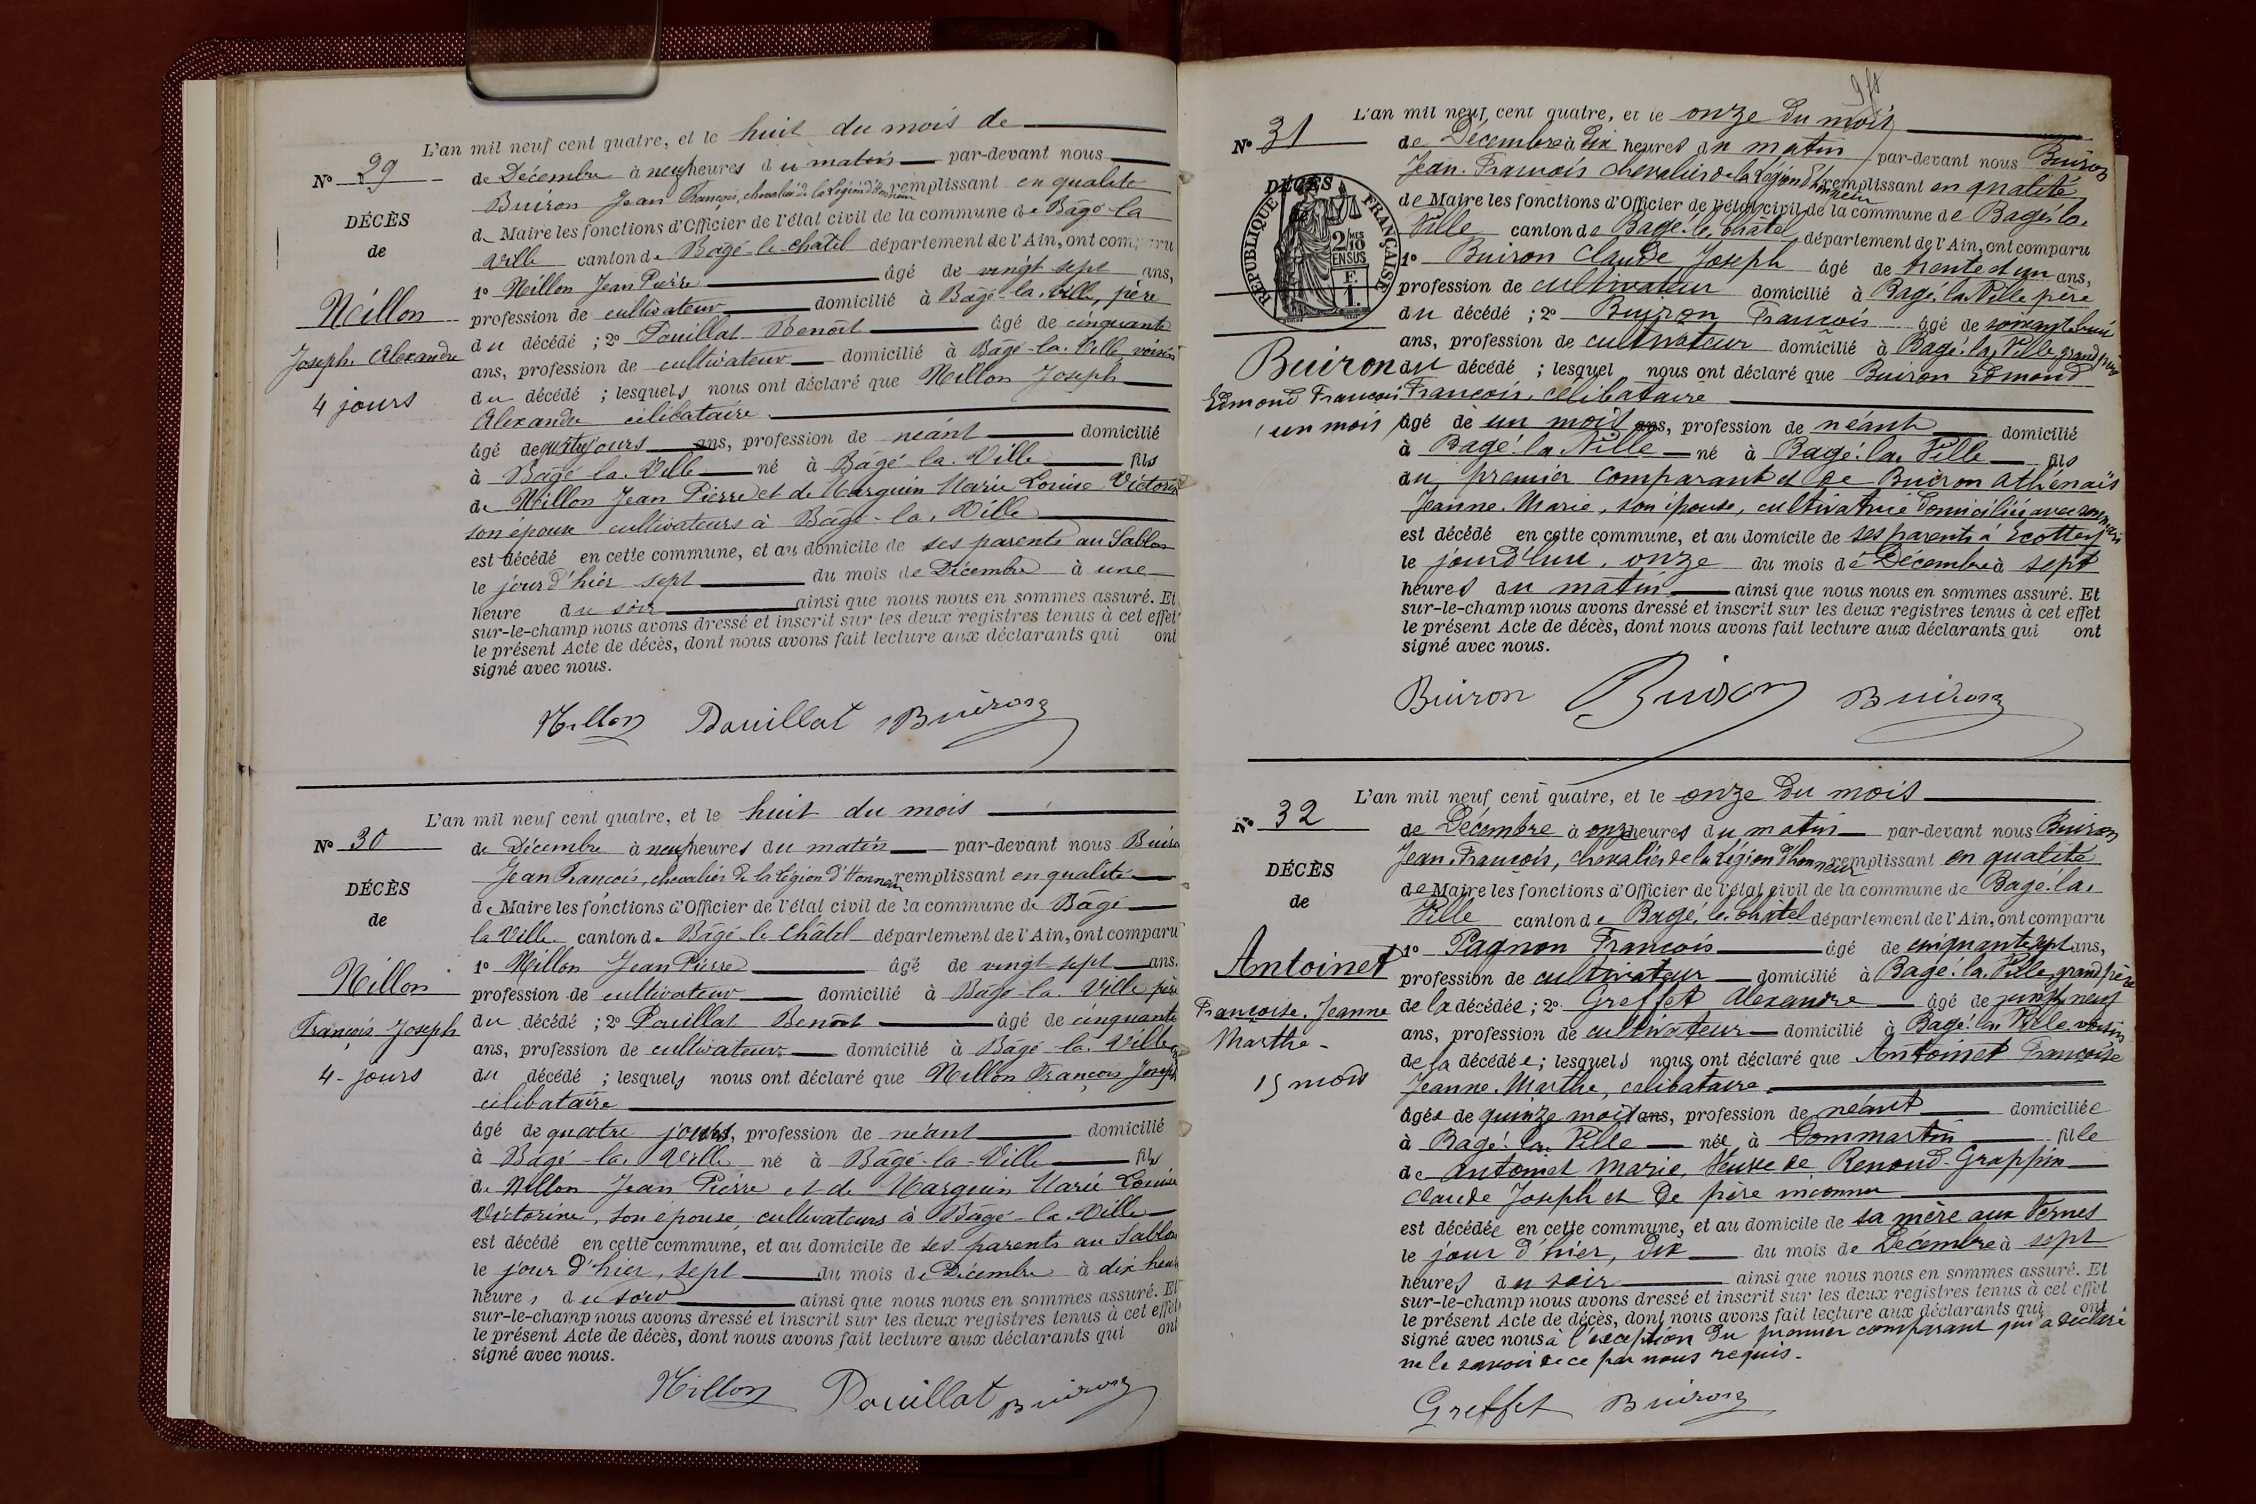 L'an mil neuf cent quatre, et le huit du mois de
Nº 29
de Décembre à neuf heures du matin par-devant nous
Buiron Jean François, chevalier de la Légion d'Honneur remplissant en qualité
DÉCÈS
de Maire les fonctions d'Officier de l'état civil de la commune de Bâgé-la
de
Ville canton de Bâgé-le-Châtel département de l'Ain, ont comparu
1º Millon Jean Pierre âgé de vingt sept ans,
Millon
profession de cultivateur domicilié à Bâgé-la-Ville, père
du décédé ; 2º Pouillat Benoît âgé de cinquante
Joseph Alexandre
ans, profession de cultivateur domicilié à Bâgé-la-Ville voisin
4 jours
du décédé ; lesquels nous ont déclaré que Millon Joseph
Alexandre célibataire
âgé de quatre jours ans, profession de néant domicilié
à Bâgé-la-Ville né à Bâgé-la-Ville fils
de Millon Jean Pierre et de Marguin Marie Louise Victorine
son épouse cultivateurs à Bâgé-la-Ville
est décédé en cette commune, et au domicile de ses parents au Sablon
le jour d'hier sept du mois de Décembre à une
heure du soir ainsi que nous nous en sommes assuré. Et
sur-le-champ nous avons dressé et inscrit sur les deux registres tenus à cet effet
le présent Acte de décès, dont nous avons fait lecture aux déclarants qui ont
signé avec nous.
Millon Pouillat Buiron
L'an mil neuf cent quatre, et le huit du mois
Nº 30
de Décembre à neuf heures du matin par-devant nous Buiron
Jean François, chevalier de la Légion d'Honneur remplissant en qualité
DÉCÈS
de Maire les fonctions d'Officier de l'état civil de la commune de Bâgé
de
la Ville canton de Bâgé-le-Châtel département de l'Ain, ont comparu
1º Millon Jean Pierre âgé de vingt sept ans.
Millon
profession de cultivateur domicilié à Bâgé-la-Ville père
François Joseph
du décédé ; 2º Pouillat Benoît âgé de cinquante
ans, profession de cultivateur domicilié à Bâgé-la-Ville
4 - jours
du décédé ; lesquels nous ont déclaré que Millon François Joseph
célibataire
âgé de quatre jours, profession de néant domicilié
à Bâgé-la-Ville né à Bâgé-la-Ville fils
de Millon Jean Pierre et de Marguin Marie Louise
Victorine, son épouse, cultivateurs à Bâgé-la-Ville
est décédé en cette commune, et au domicile de ses parents au Sablon
le jour d'hier, sept du mois de Décembre à dix heures
heures du soir ainsi que nous nous en sommes assuré. Et
sur-le-champ nous avons dressé et inscrit sur les deux registres tenus à cet effet
le présent Acte de décès, dont nous avons fait lecture aux déclarants qui ont
signé avec nous.
Millon Pouillat Buiron
L'an mil neuf cent quatre, et le onze du mois
Nº 31
de Décembre à dix heures du matin par-devant nous Buiron
Jean-François chevalier de la Légion d'Honneur remplissant en qualité
DÉCÈS
RÉPUBLIQUE FRANÇAISE
2/10 MES
EN SUS
F.
1.
de Maire les fonctions d'Officier de l'état civil de la commune de Bagé-la-
Ville canton de Bagé-le-Châtel département de l'Ain, ont comparu
1º Buiron Claude Joseph âgé de trente et un ans,
profession de cultivateur domicilié à Bagé-la-Ville père
du décédé ; 2º Buiron François âgé de soixante huit
ans, profession de cultivateur domicilié à Bagé-la-Ville grand père
Buiron
du décédé ; lesquel nous ont déclaré que Buiron Edmond
Edmond François
François, célibataire
un mois
âgé de un mois ans, profession de néant domicilié
à Bagé-la-Ville né à Bagé-la-Ville fils
du premier comparant et de Buiron Athénaïs
Jeanne-Marie, son épouse, cultivatrice domiciliée avec son mari
est décédé en cette commune, et au domicile de ses parents à Ecottey
le jourd'hui, onze du mois de Décembre à sept
heures du matin ainsi que nous nous en sommes assuré. Et
sur-le-champ nous avons dressé et inscrit sur les deux registres tenus à cet effet
le présent Acte de décès, dont nous avons fait lecture aux déclarants qui ont
signé avec nous.
Buiron Buiron Buiron
L'an mil neuf cent quatre, et le onze du mois
Nº 32
de Décembre à onze heures du matin par-devant nous Buiron
Jean-François, chevalier de la Légion d'honneur remplissant en qualité
DÉCÈS
de Maire les fonctions d'Officier de l'état civil de la commune de Bagé-la-
de
Ville canton de Bagé-le-Châtel département de l'Ain, ont comparu
1º Pagnon François âgé de cinquante sept ans,
Antoinet
profession de cultivateur domicilié à Bagé-la-Ville grand père
Françoise-Jeanne
de la décédée ; 2º Greffet Alexandre âgé de vingt neuf
ans, profession de cultivateur domicilié à Bagé-la-Ville voisin
Marthe -
de la décédée ; lesquels nous ont déclaré que Antoinet Françoise
15 mois
Jeanne-Marthe, célibataire
âgée de quinze mois ans, profession de néant domiciliée
à Bagé-la-Ville née à Dommartin fille
de Antoinet Marie, Veuve de Renoud-Grappin
Claude Joseph et de père inconnu
est décédée en cette commune, et au domicile de sa mère aux Vernes
le jour d'hier, dix du mois de Décembre à sept
heures du soir ainsi que nous nous en sommes assuré. Et
sur-le-champ nous avons dressé et inscrit sur les deux registres tenus à cet effet
le présent Acte de décès, dont nous avons fait lecture aux déclarants qui ont
signé avec nous à l'exception du premier comparant qui a déclaré
ne le savoir de ce par nous requis.
Greffet Buiron